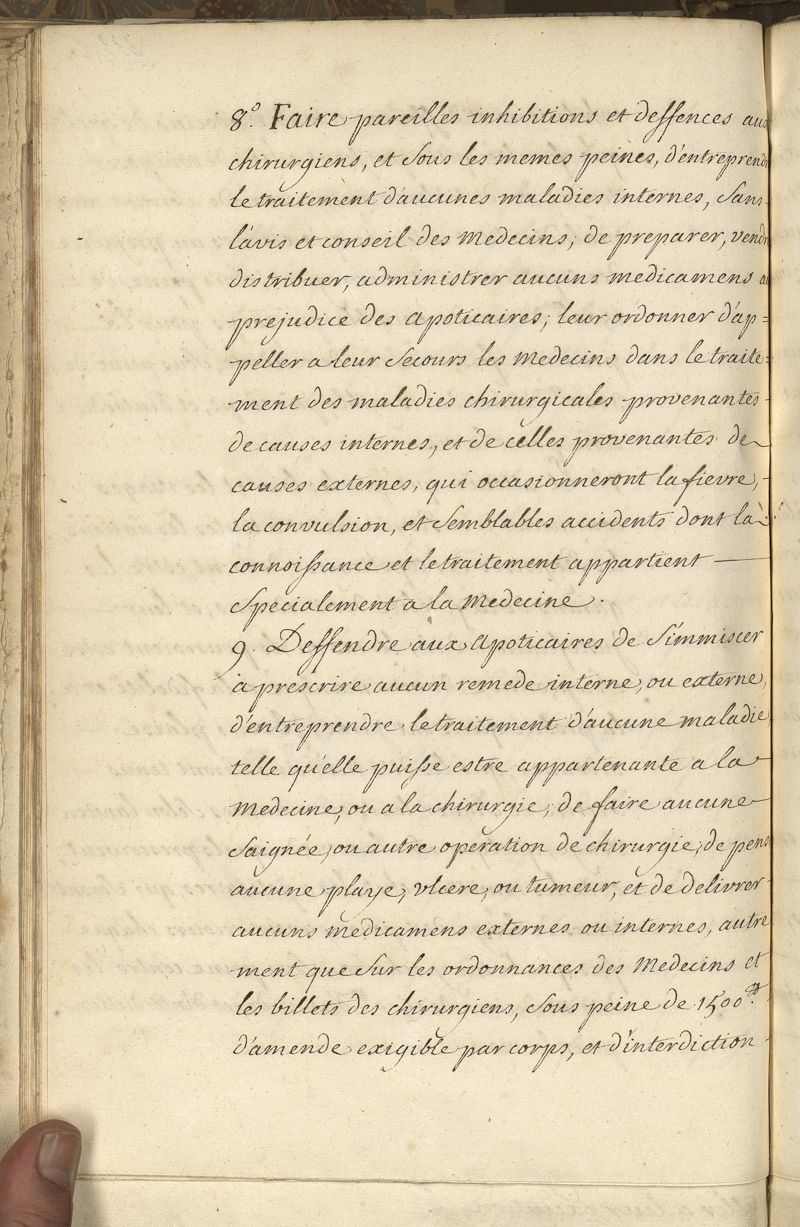 8.° Faire pareilles inhibitions et deffences aux
chirurgiens, et sous les memes peines, d'entreprendr
le traitement d'aucunes maladies internes, sans
l'avis et conseil des Medecins; de preparer, vendr
distribuer, administrer aucuns medicamens a
prejudice des apoticaires; leur ordonner d'ap=
peller a leur secours les Medecins dans le traite=
ment des maladies chirurgicales provenantes
de causes internes, et de celles provenantes de
causes externes, qui occasionneront la fievre,
la convulsion, et semblables accidents dont la
connoissance et le traitement appartient —
specialement a la Medecine.
9. Deffendre aux apoticaires de s'immiscer
à prescrire aucun remede interne, ou externe,
d'entreprendre le traitement d'aucune maladie
telle qu'elle puisse estre appartenante a la
Medecine, ou a la chirurgie, de faire aucune
saignée, ou autre operation de chirurgie; de pens
aucune playe, vlcere, ou tumeur, et de delivrer
aucuns medicamens externes ou internes, autre
ment que sur les ordonnances des Medecins et
les billets des chirurgiens, sous peine de 1500.tt
d'amende exigible par corps, et d'interdiction